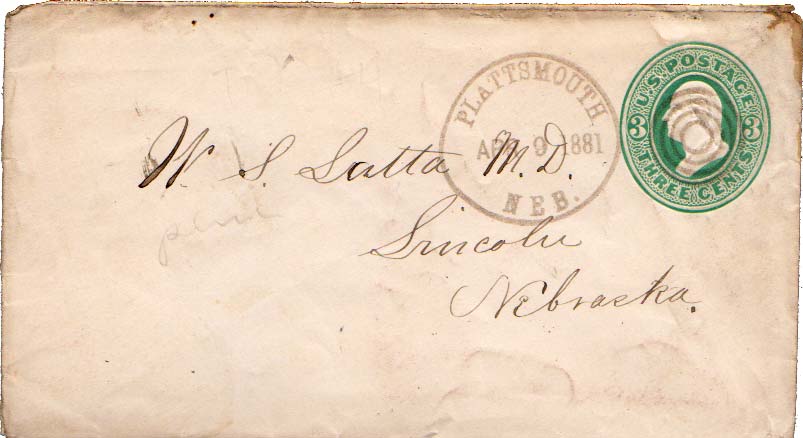 PLATTSMOUTH
APR 9 1881
NEB.
U.S. POSTAGE
3 3
THREE CENTS
W. S. Latta M.D.
Lincoln
Nebraska.